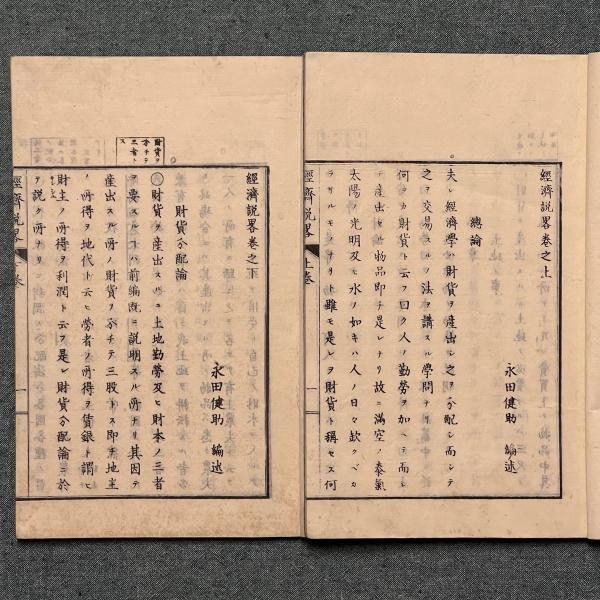 經濟説畧巻之上
永田健助 編述
總論
夫レ經濟學ハ財貨ヲ産出シ之ヲ分配シ而シテ
之ヲ交易スルノ法ヲ講スル學問ナリ
何ヲカ財貨ト云フ曰ク人ノ勤勞ヲ加ヘテ而シ
テ産出セル物品即チ是レナリ故ニ滿空ノ泰氣
太陽ノ光明及モ水ノ如キハ人ノ日々欠クベカ
ラサルモノナリト雖モ是レヲ財貨ト稱セス何
經濟説畧
上巻
一
經濟説畧巻之下
永田健助 編述
財貨分配論
財貨ヲ産出スルニ土地勤勞及ヒ財本ノ三者
ヲ要スルコハ前編既ニ説明スル所ナリ其因テ
産出スル所ノ財貨ヲ分チテ三股トス即チ地主
ノ所得ヲ地代ト云ヒ勞者ノ所得ヲ賃銀ト謂ヒ
財主ノ所得ヲ利潤ト云フ是レ財貨分配論ニ於
ヲ説ク所ナリ
財貨ヲ
分チテ
三者ト
ス
經濟説畧
一